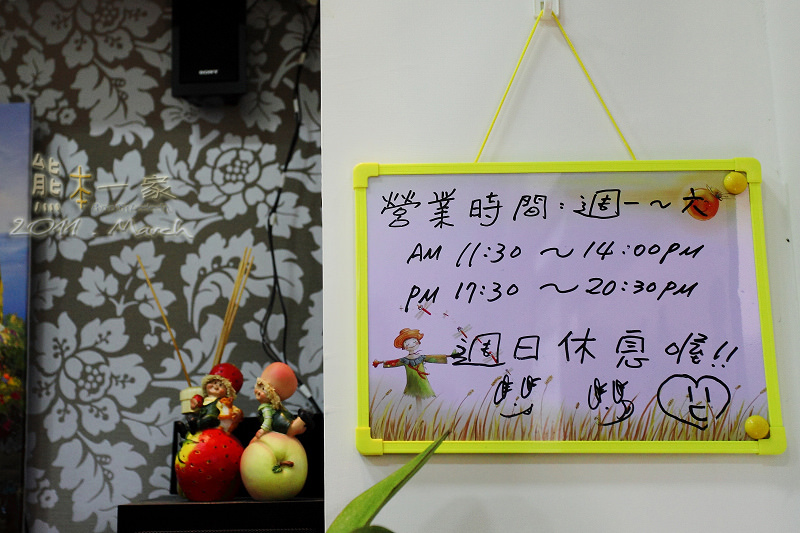 SONY
熊本一家
2011. March
營業時間:週一~六
AM 11:30 ~ 14:00PM
PM 17:30 ~ 20:30PM
週日休息喔!!